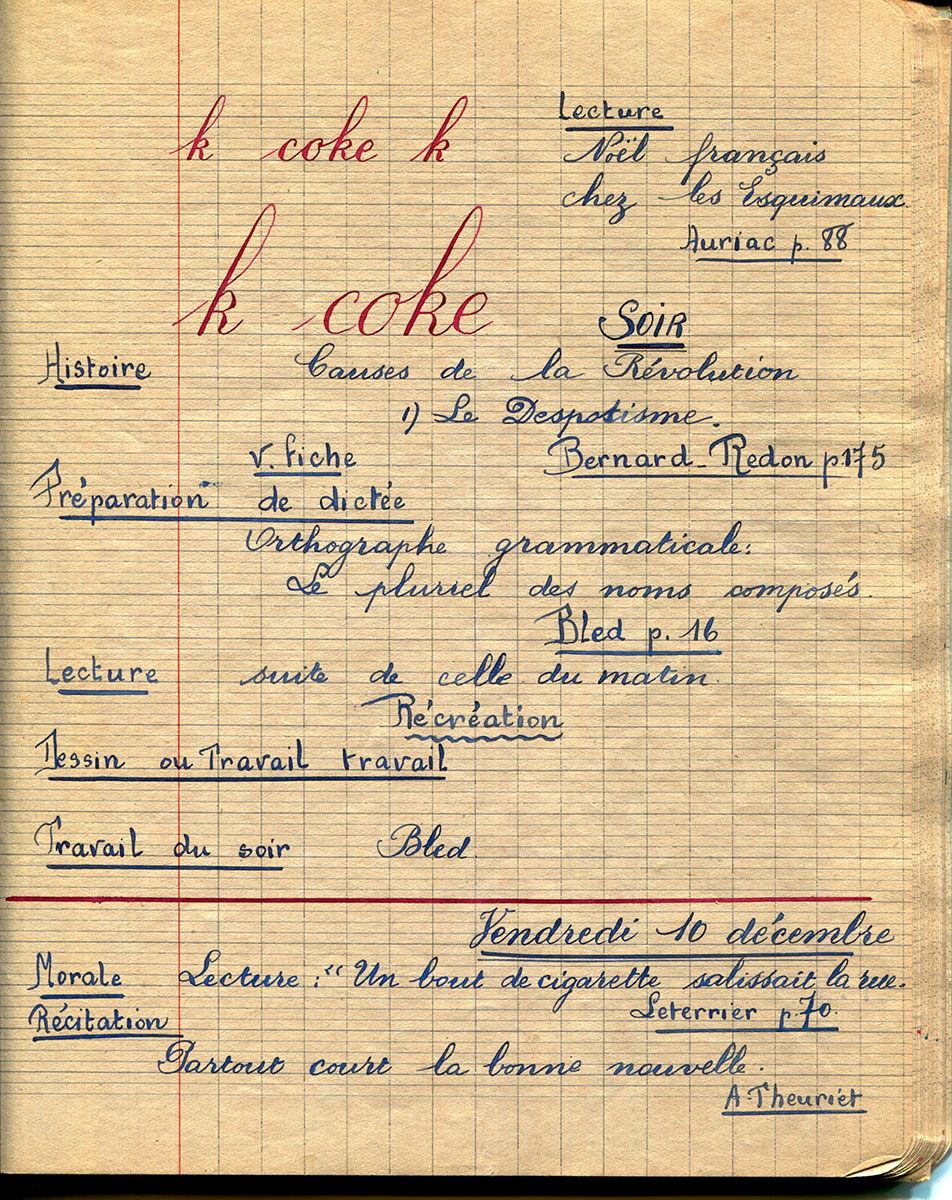 k coke k
Lecture
Noël français
chez les Esquimaux
Auriac p. 88
k coke
SOIR
Histoire Causes de la Révolution
1) Le Despotisme.
v. fiche Bernard-Redon p.175
Préparation de dictée
Orthographe grammaticale:
Le pluriel des noms composés.
Bled p. 16
Lecture suite de celle du matin.
Récréation
Dessin ou Travail travail
Travail du soir Bled.
Vendredi 10 décembre
Morale Lecture : " Un bout de cigarette salissait la rue.
Récitation Leterrier p.70.
Partout court la bonne nouvelle.
A. Theuriet